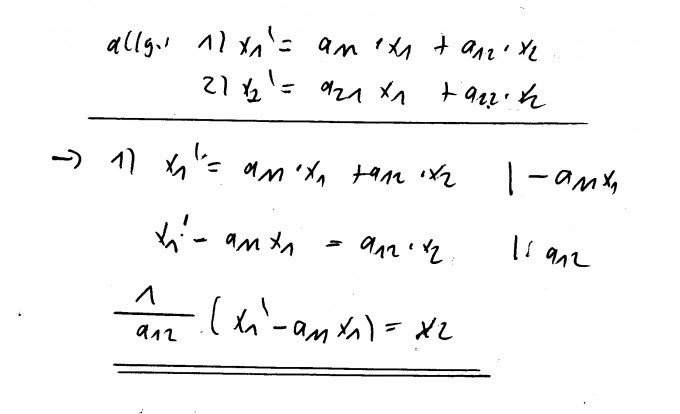 allg.: 1) x₁' = a₁₁ · x₁ + a₁₂ · x₂
2) x₂' = a₂₁ x₁ + a₂₂ · x₂
→ 1) x₁' = a₁₁ · x₁ + a₁₂ · x₂ | - a₁₁ x₁
x₁' - a₁₁ x₁ = a₁₂ · x₂ | : a₁₂
1/a₁₂ · (x₁' - a₁₁ x₁) = x₂